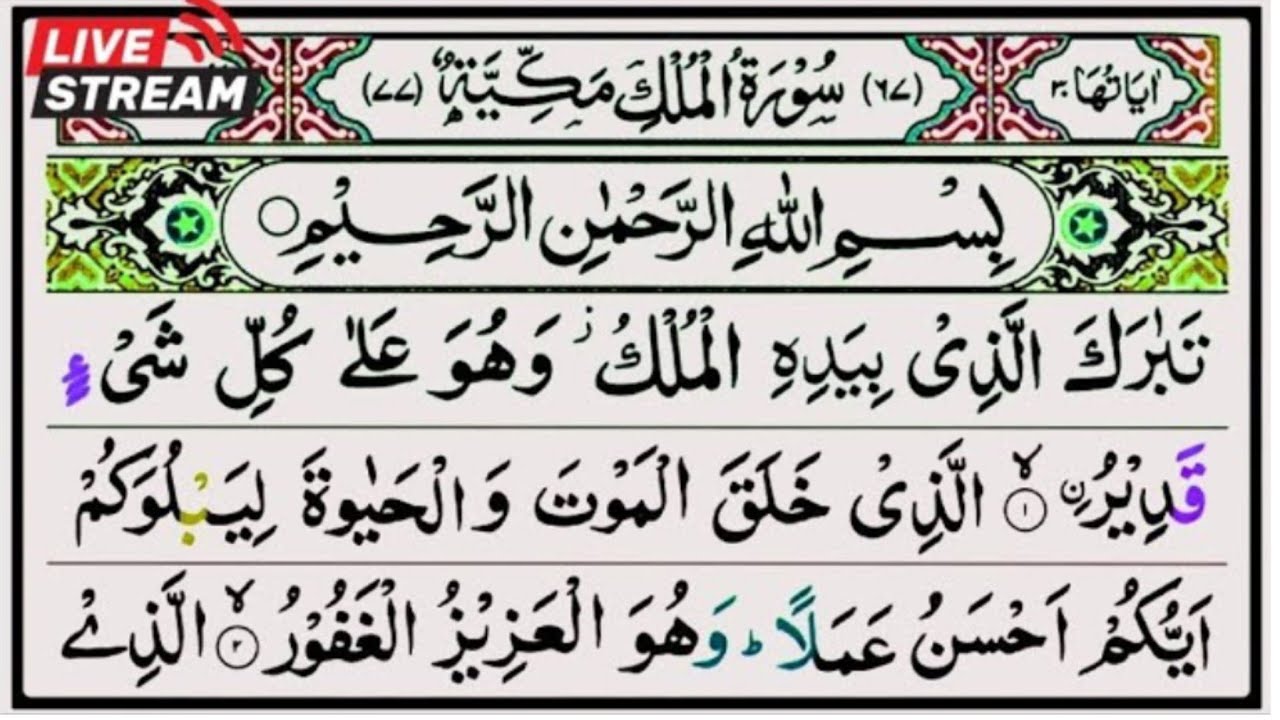 LIVE
STREAM
اٰيَاتُهَا ٣٠
(٦٧) سُوْرَةُ الْمُلْكِ مَكِّيَّةٌ (٧٧)
بِسْمِ اللّٰهِ الرَّحْمٰنِ الرَّحِيْمِ
تَبٰرَكَ الَّذِىْ بِيَدِهِ الْمُلْكُ ز وَهُوَ عَلٰى كُلِّ شَىْءٍ
قَدِيْرُ ۨ ۙ ١ الَّذِىْ خَلَقَ الْمَوْتَ وَالْحَيٰوةَ لِيَبْلُوَكُمْ
اَيُّكُمْ اَحْسَنُ عَمَلًا ؕ وَهُوَ الْعَزِيْزُ الْغَفُوْرُ ۙ ٢ الَّذِىْ